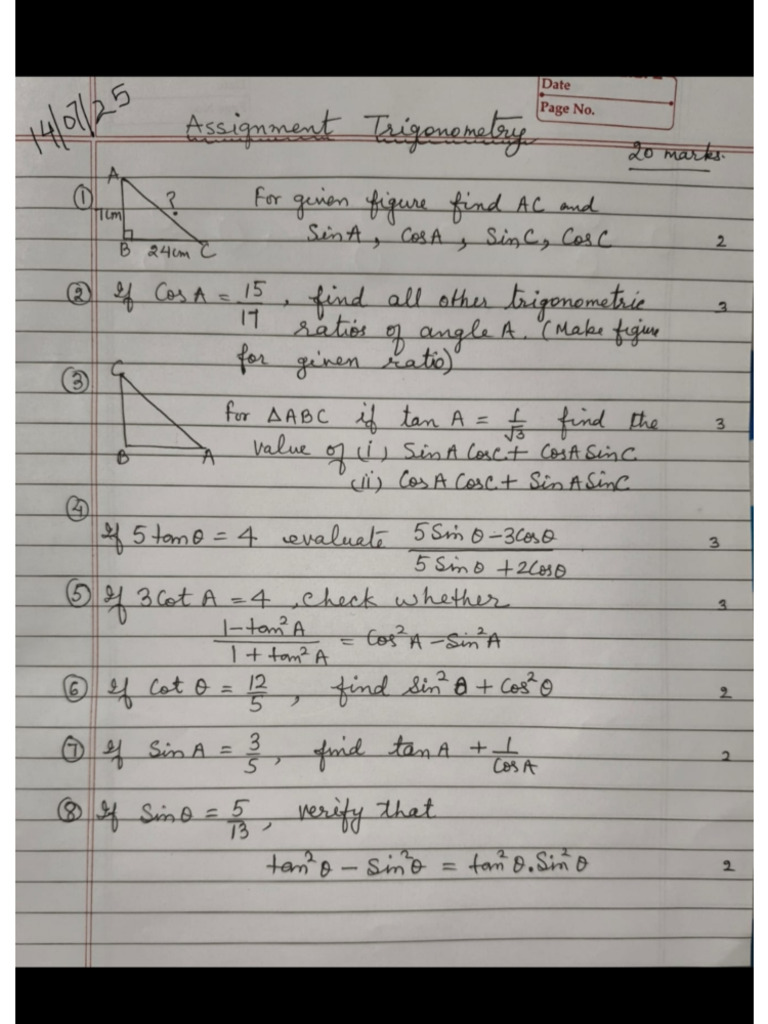 Date
Page No.
14/07/25
Assignment Trigonometry
20 marks.
① A ? 7cm B 24cm C For given figure find AC and
Sin A, Cos A, Sin C, Cos C 2
② If Cos A = 15/17, find all other trigonometric 3
ratios of angle A. (Make figure
for given ratio)
③ C B A For △ABC if tan A = 1/√3 find the 3
value of (i) Sin A Cos C + Cos A Sin C
(ii) Cos A Cos C + Sin A Sin C
④
If 5 tan θ = 4 evaluate (5 Sin θ - 3 Cos θ)/(5 Sin θ + 2 Cos θ) 3
⑤ If 3 Cot A = 4, check whether 3
(1 - tan² A)/(1 + tan² A) = Cos² A - Sin² A
⑥ If Cot θ = 12/5, find Sin² θ + Cos² θ 2
⑦ If Sin A = 3/5, find tan A + 1/Cos A 2
⑧ If Sin θ = 5/13, verify that
tan² θ - Sin² θ = tan² θ . Sin² θ 2